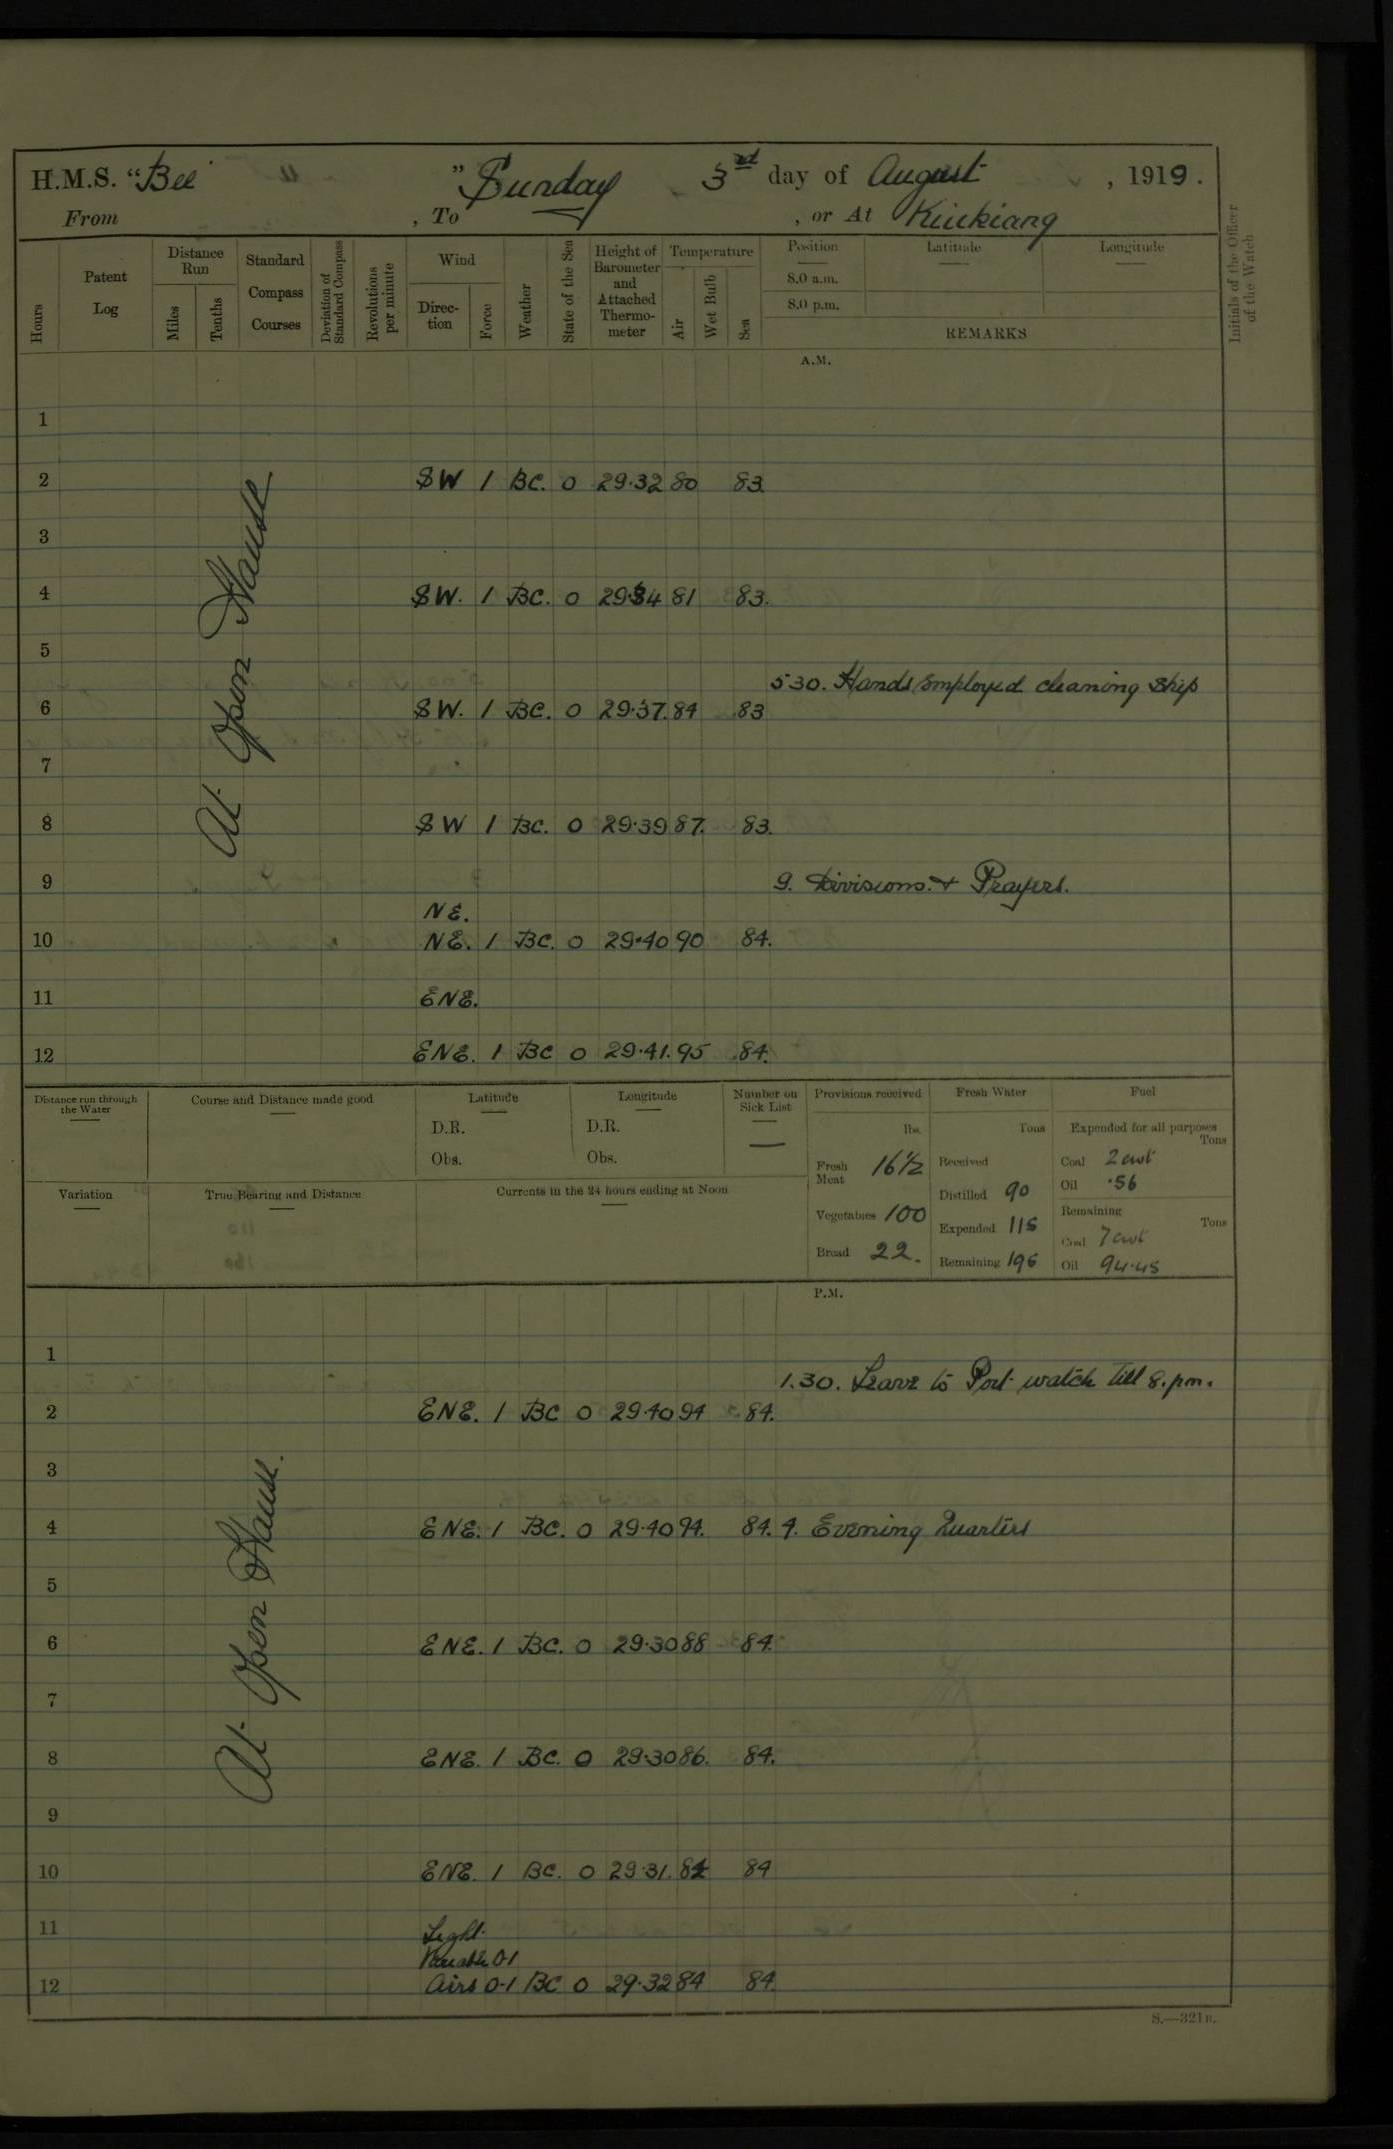 H.M.S. "Bee" Sunday 3rd day of August, 1919.
From , To , or At Kiukiang
Hours
Patent Log
Distance Run
Miles
Tenths
Standard Compass Courses
Deviation of Standard Compass
Revolutions per minute
Wind
Direc-tion
Force
Weather
State of the Sea
Height of Barometer and Attached Thermo-meter
Temperature
Air
Wet Bulb
Sea
Position
8.0 a.m.
8.0 p.m.
Latitude
Longitude
REMARKS
Initials of the Officer of the Watch
A.M.
At Open Hause
1
2 SW 1 BC. 0 29.32 80 83
3
4 SW. 1 BC. 0 29.34 81 83.
5
530. Hands employed cleaning Ship
6 SW. 1 BC. 0 29.37. 84 83
7
8 SW 1 BC. 0 29.39 87. 83.
9 9. Divisions. & Prayers.
NE.
10 NE. 1 BC. 0 29.40 90 84.
11 ENE.
12 ENE. 1 BC 0 29.41. 95 84.
Distance run through the Water
Course and Distance made good
Latitude
D.R.
Obs.
Longitude
D.R.
Obs.
Number on Sick List
—
Provisions received
lbs.
Fresh Meat 16½
Vegetables 100
Bread 22.
Fresh Water
Tons
Received
Distilled 90
Expended 115
Remaining 196
Fuel
Expended for all purposes
Tons
Coal 2 cwt
Oil .56
Remaining
Tons
Coal 7 cwt
Oil 94.45
Variation
True Bearing and Distance
Currents in the 24 hours ending at Noon
P.M.
At Open Hause.
1
1.30. Leave to Port watch till 8. pm.
2 ENE. 1 BC 0 29.40 94 84.
3
4 ENE. 1 BC. 0 29.40 94. 84. 4. Evening Quarters
5
6 ENE. 1 BC. 0 29.30 88 84.
7
8 ENE. 1 BC. 0 29.30 86. 84.
9
10 ENE. 1 BC. 0 29.31. 84 84
11 Light
Variable 0-1
12 Airs 0-1 BC 0 29.32 84 84.
S.—321B.